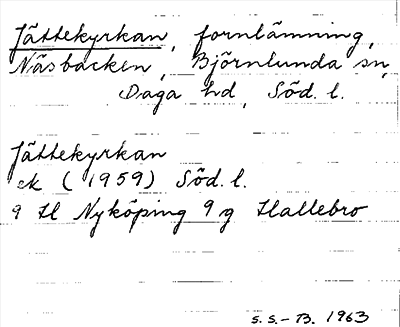 Jättekyrkan, fornlämning,
Näsbacken, Björnlunda sn,
Daga hd, Söd. l.
Jättekyrkan
ek (1959) Söd. l.
9 H Nyköping 9 g Hallebro
S. S. - B. 1963